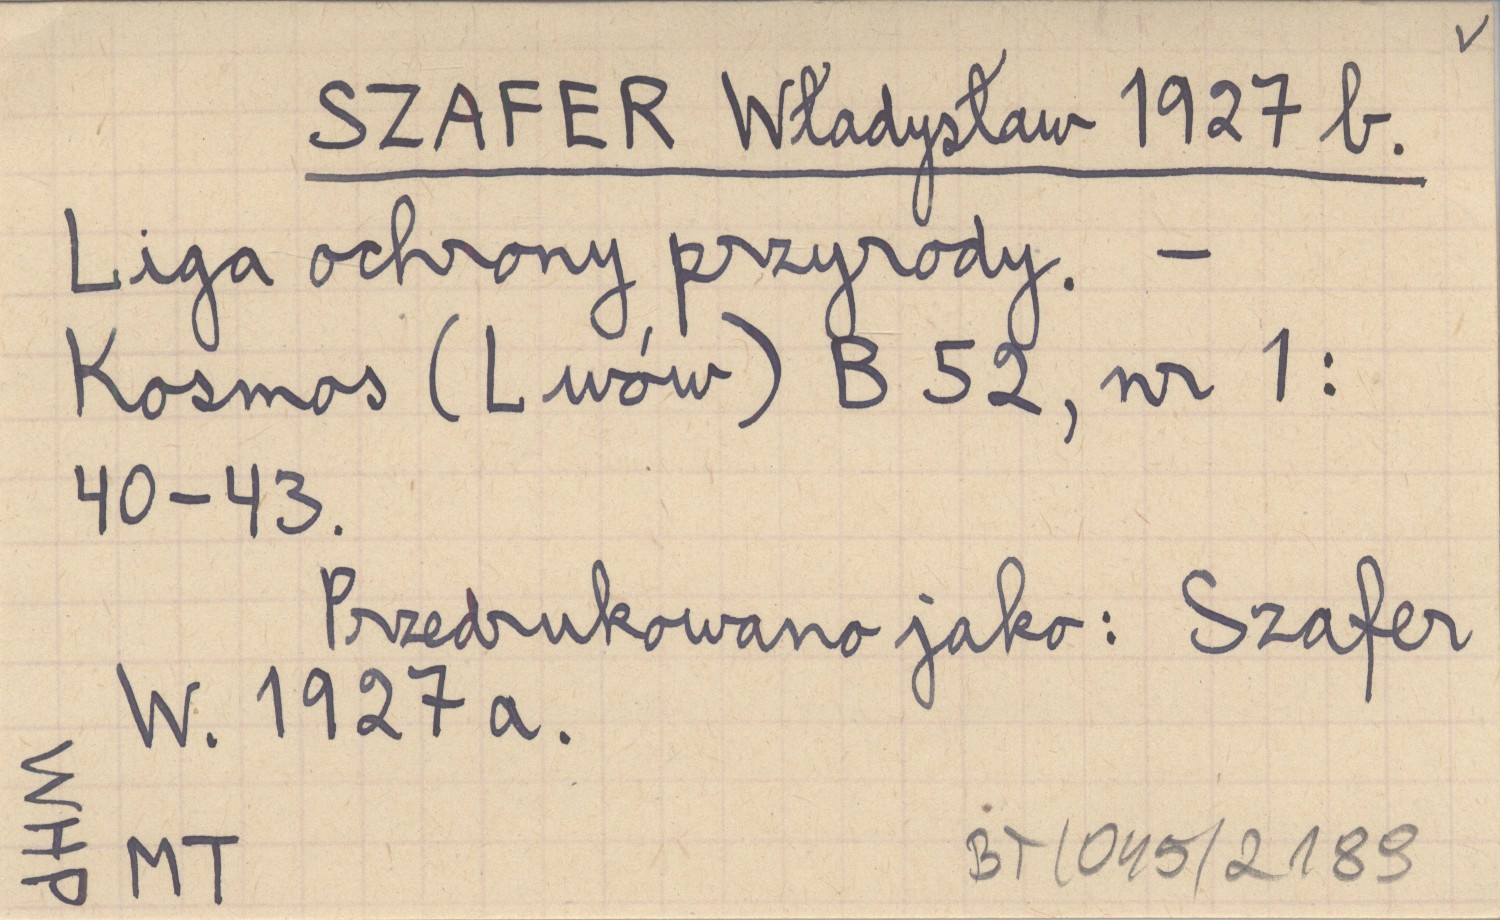 ✓
SZAFER Władysław 1927 b.
Liga ochrony przyrody. –
Kosmos (Lwów) B 52, nr 1:
40–43.
Przedrukowano jako: Szafer
W. 1927 a.
WHP
MT
BT/045/2189